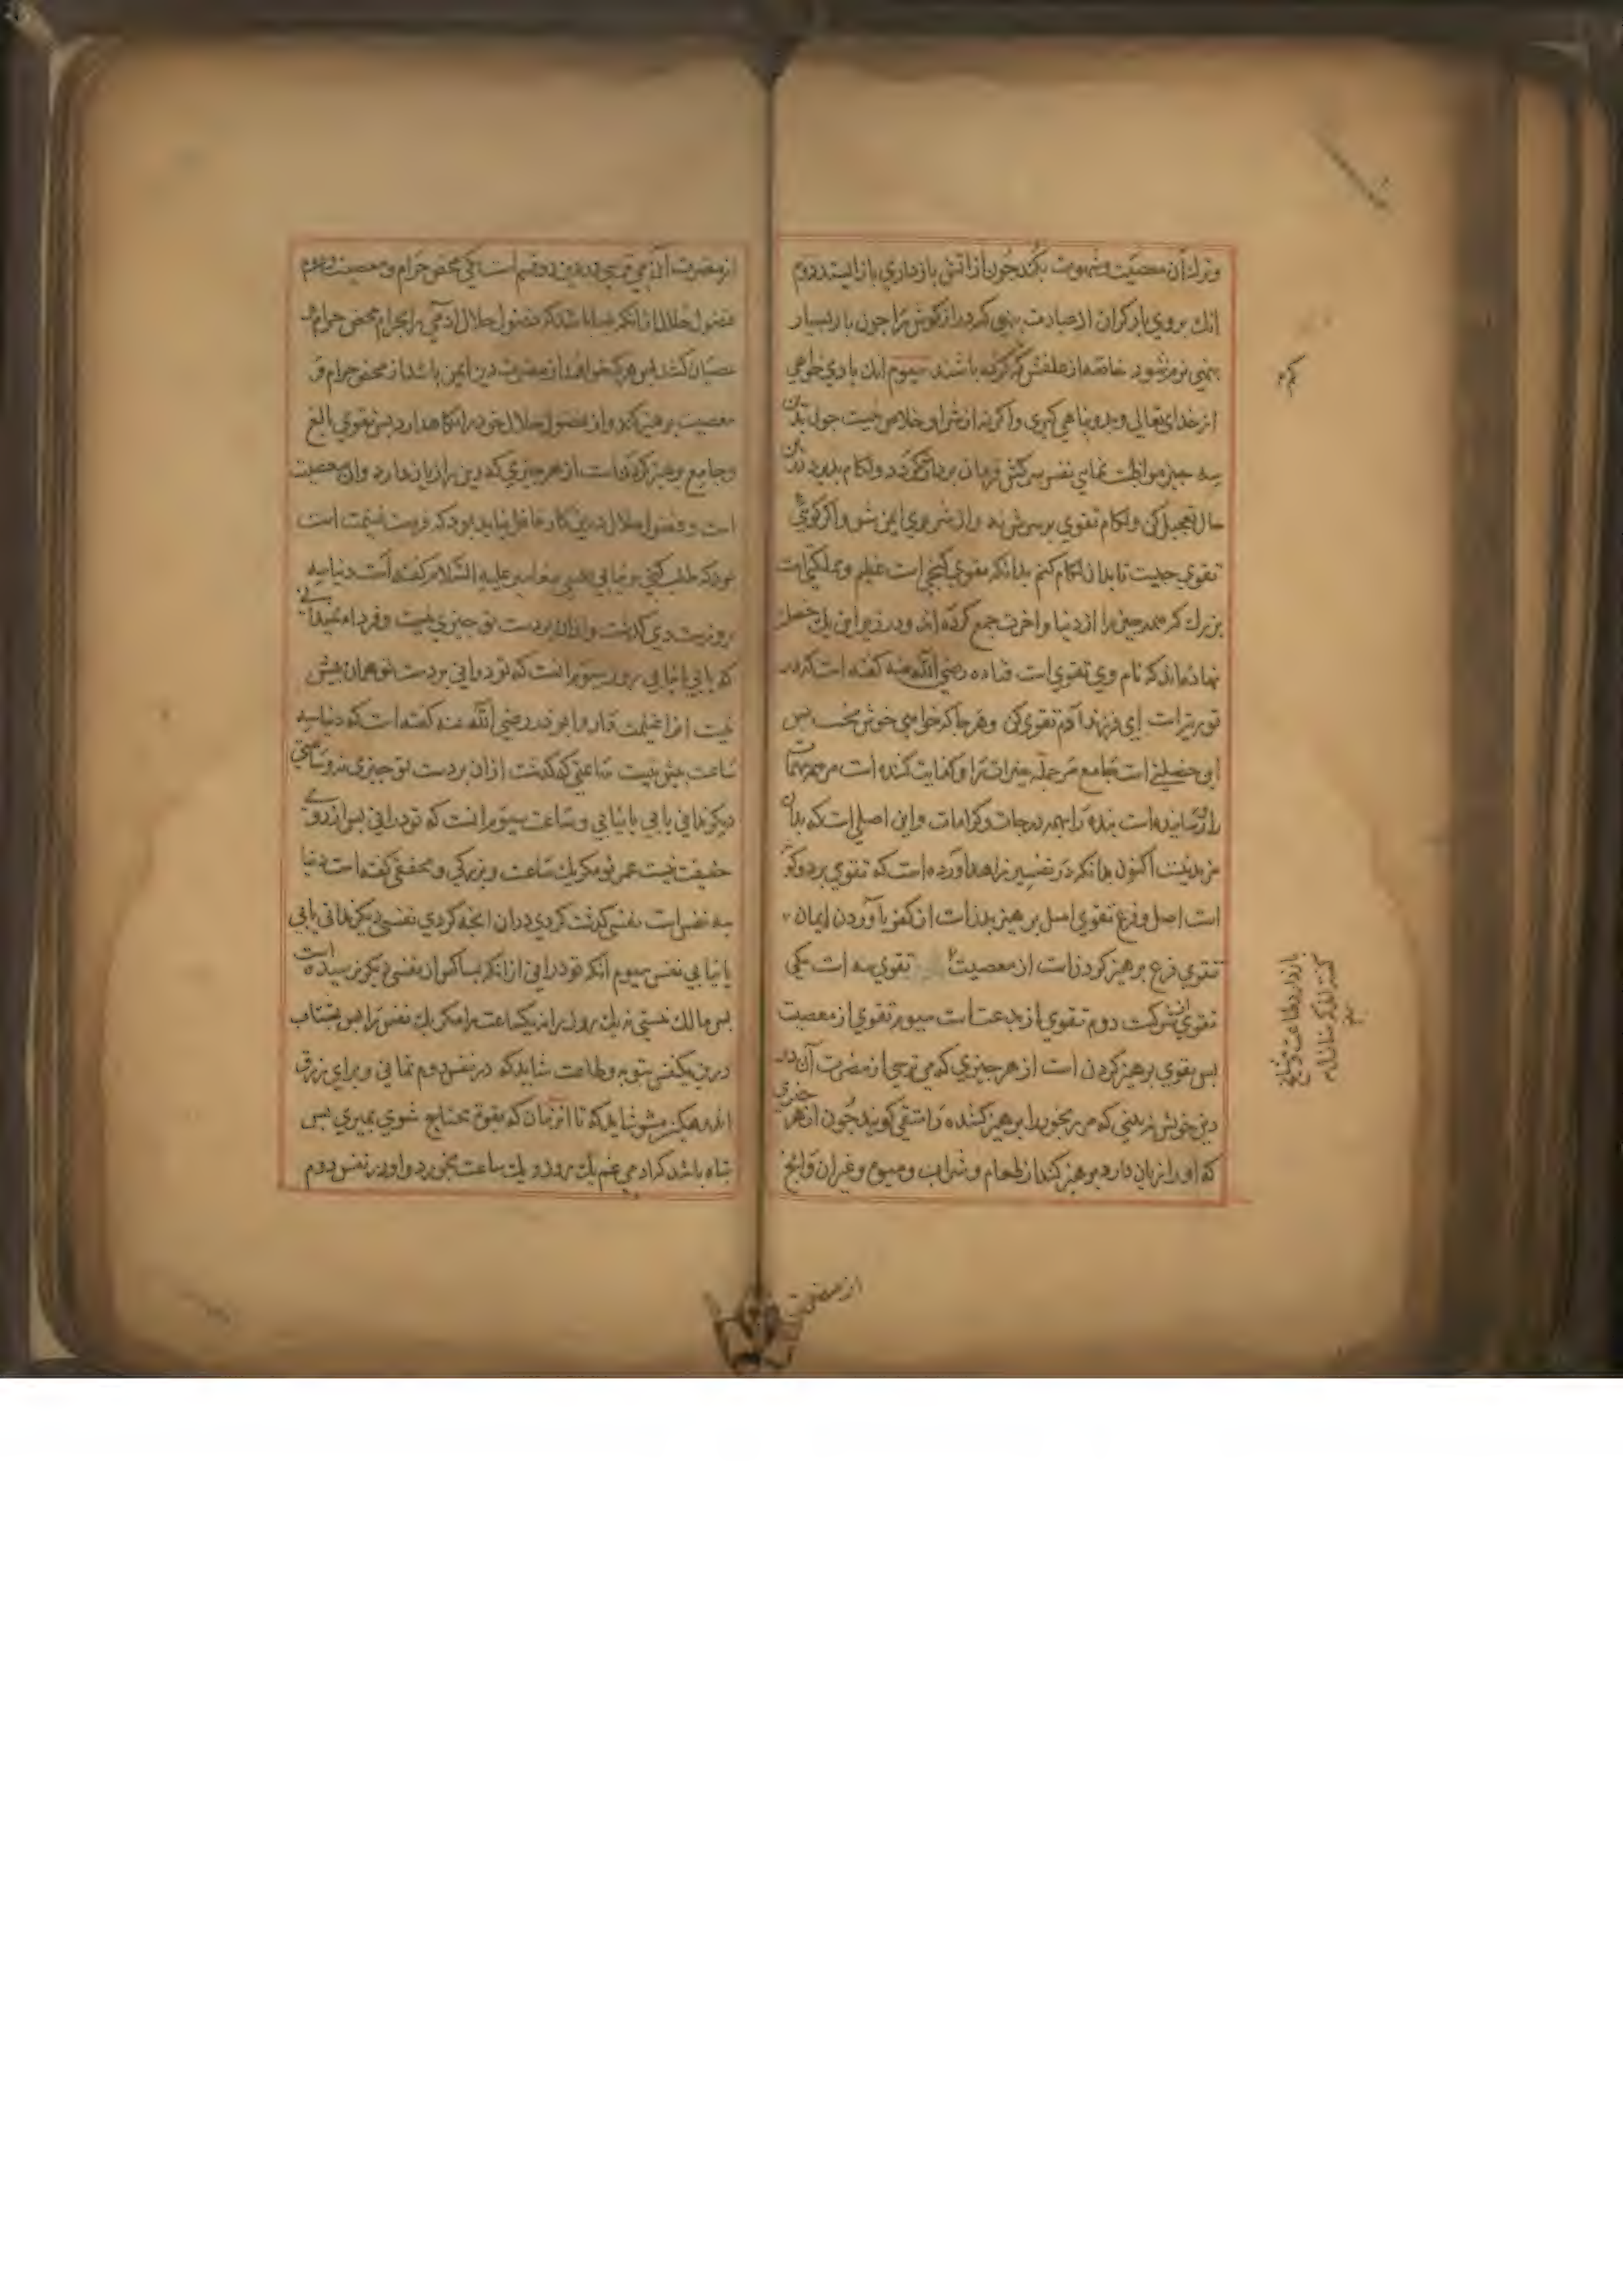 وترك آن معصیت و شهوت بکند چون از آتش بازداری باز ایستد دوم
انك بروي بار کران از عبادت بنهي که دراز کوش را چون بار بسیار
بنهي نرم شود خاصه از علفش کم کرده باشند سیوم انك یاري خواهي
از خداي تعالی و بدو پناهي کیري واکر نه از شر او خلاص نیست چون بدین
سه چیز مواظبت نمایي نفس سرکش فرمان بردار کردد ولکام پذیرد دران
حال تعجیل کن ولکام تقوي بر سرش نه واز شر وي ایمن شو واکر کویي
تقوي چیست تا بدان لکام کنم بدانکه تقوي کنجي است عظیم ومملکتي است
بزرك که همه چیز را از دنیا و آخرت جمع کرده اند و در زیر این یك خصلت
نهاده اند که نام وي تقوي است قتاده رضي الله عنه کفته است که در
توریت است اي فرزند آدم تقوي کن وهر جا که خواهي خوش بخسب پس
این خصلتي است جامع مر جمله خیرات را و کفایت کننده است مر همه مهمات
را ورساننده است بنده را بهمه درجات وکرامات واین اصلي است که بدان
مزید نیست اکنون بدانکه در تفسیر زاهد آورده است که تقوي بر دو کونه
است اصل وفرع تقوي اصل پرهیزیدن است از کفر با آوردن ایمان
تقوي فرع پرهیز کردن است از معصیت تقوي سه است یکي
تقوي از شرکت دوم تقوي از بدعت است سیوم تقوي از معصیت
پس تقوي پرهیز کردن است از هر چیزي که مي ترسي از مضرت آن در
دین خویش نه بیني که مر رنجور را پرهیز کننده را متقي کویند چون از هر چیزي
که او را زیان دارد پرهیز کند از طعام و شراب و میوه و غیر آن و آنچ
از مضرت
از مضرت آن مي ترسي در دین دو قسم است یکي محض حرام و معصیت و دوم
فضول حلال از انکه بسا باشد که فضول حلال آدمي را بحرام محض حرام و
عصیان کشد پس هر که خواهد از مضرت دین ایمن باشد از محض حرام و
معصیت پرهیز کند و از فضول حلال خود را نکاهدارد پس تقوي بالغ
وجامع پرهیز کردن است از هر چیزي که دین را زیان دارد وان معصیت
است و فضول حلال درین کار غافل نباید بود که فرصت غنیمت است
زود که طلب کني و نیابي پیغامبر علیه السلام کفته است دنیا سه
روزیست دي کذشت و ازان بردست تو چیزي نیست وفردا نمیداني
که یابي یا نیابي روز سیوم انست که تو دراني بردست تو همان بیش
نیست انرا غنیمت دار وابوذر رضي الله عنه کفته است که دنیا سه
ساعت بیش نیست ساعتي که کذشت ازان بردست تو چیزي نه وساعتي
دیکر نداني یابي یا نیابي وساعت سیوم انست که تو دراني پس از روي
حقیقت نیست عمر تو مکر یك ساعت وبزرکي ومحققي کفته است دنیا
سه نفس است نفسي کذشت کردي دران انچه کردي نفسي دیکر نداني یابي
یا نیابي نفس سیوم آنکه تو دراني از انکه بسا کس ان نفس دیکر نرسیده است
پس مالك نیستي نه یك روز را نه یکساعت را مکر یك نفس را پس بشتاب
درین یکنفس بتوبه و طاعت شاید که در نفس دوم نماني و براي رزق
اندوهکین مشو شاید که تا آن زمان که بقوت محتاج شوي بمیري پس
تباه باشد که آدمي غم یك روز و یك ساعت بخورد و او در نفس دوم